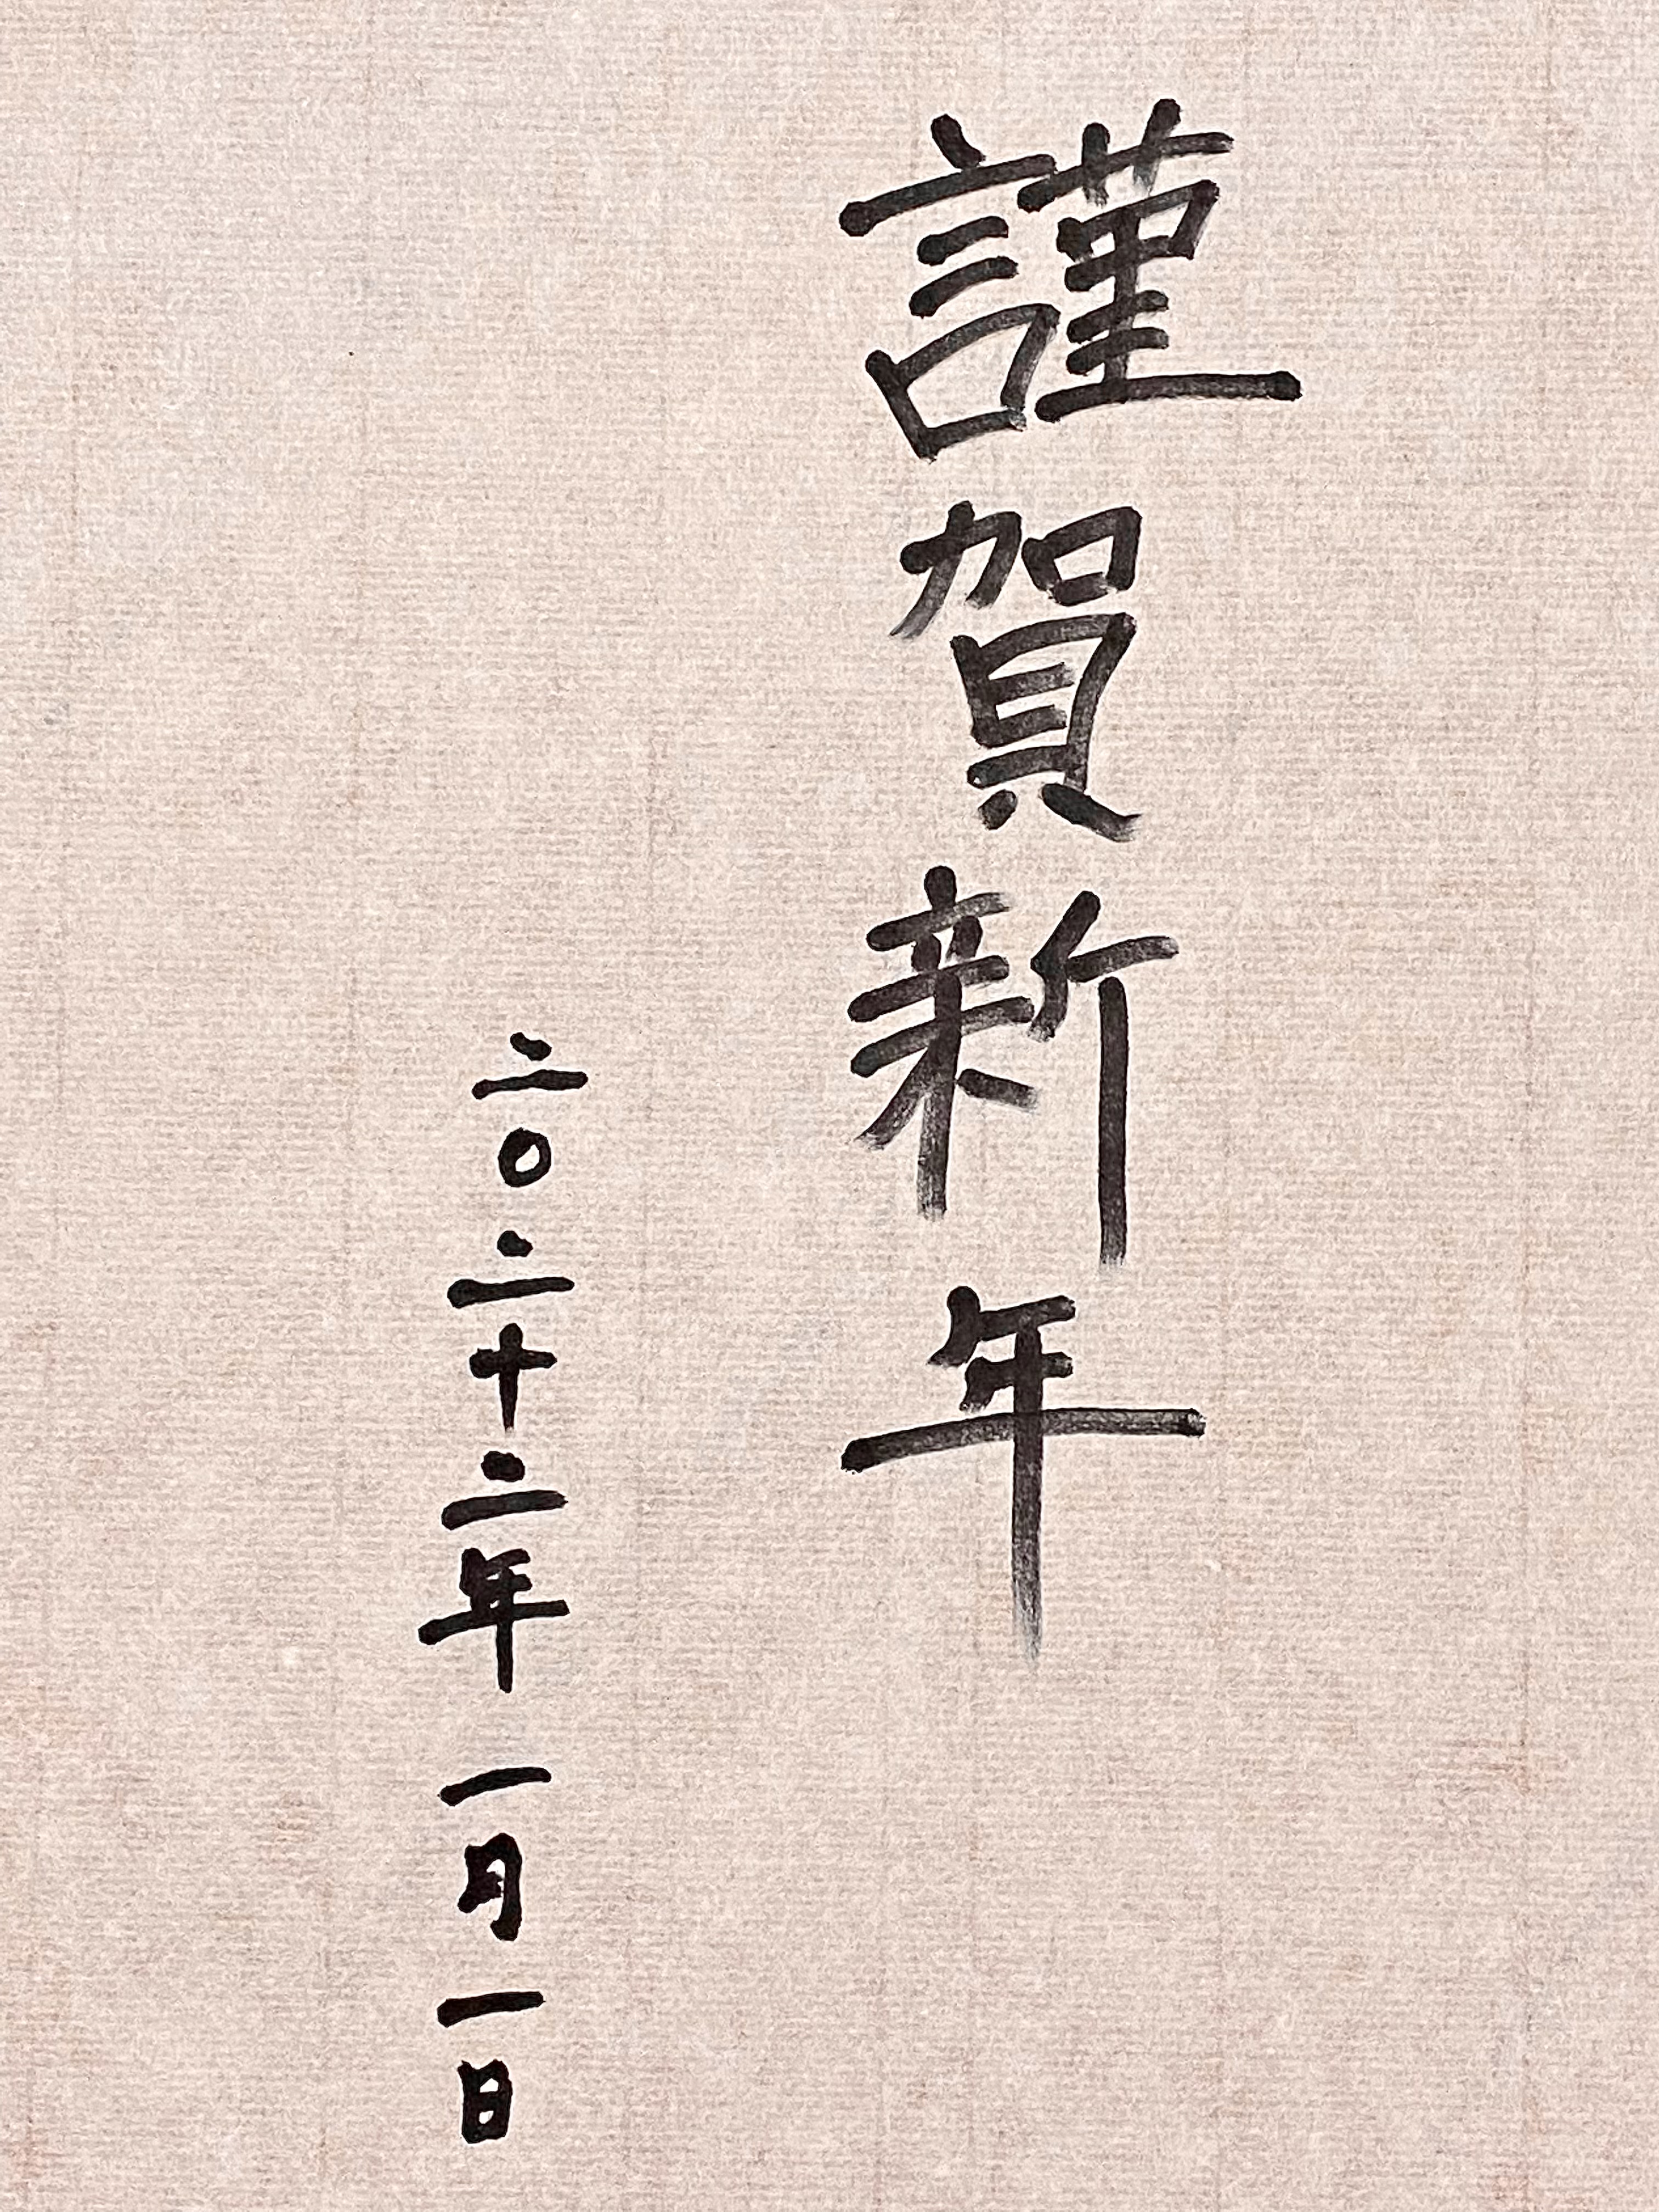 謹賀新年
二〇二十二年 一月一日